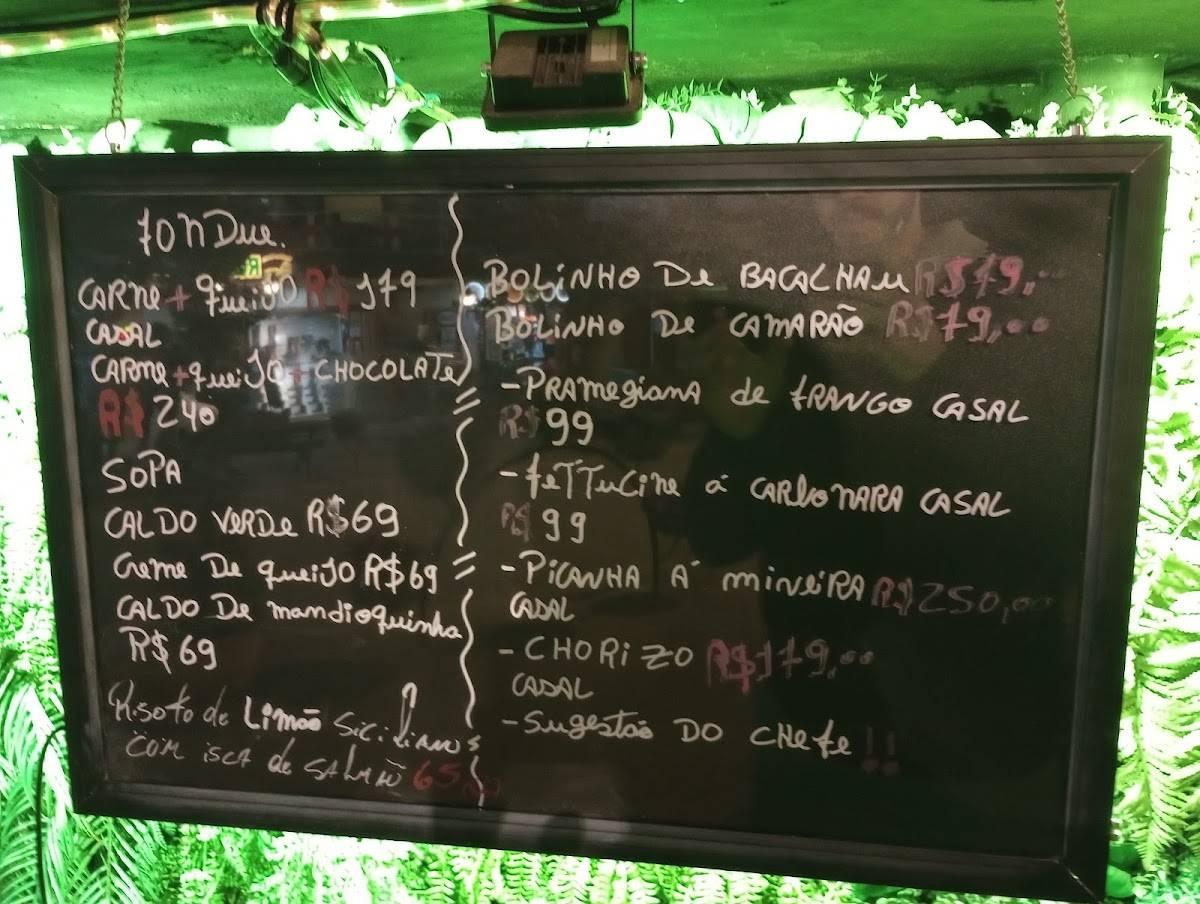 FONDUE.
CARNE + QUEIJO R$ 179
CASAL
CARNE + QUEIJO + CHOCOLATE
R$ 240
SOPA
CALDO VERDE R$69
CREME DE QUEIJO R$69
CALDO DE MANDIOQUINHA
R$69
Risoto de Limão Siciliano
COM ISCA de SALMÃO 65
BOLINHO DE BACALHAU R$79,00
BOLINHO DE CAMARÃO R$79,00
-PRAMEGIANA de FRANGO CASAL
R$ 99
-FETTUCINE á CARBONARA CASAL
R$ 99
-PICANHA Á MINEIRA R$250,00
CASAL
-CHORIZO R$179,00
CASAL
-Sugestão DO CHEFE !!